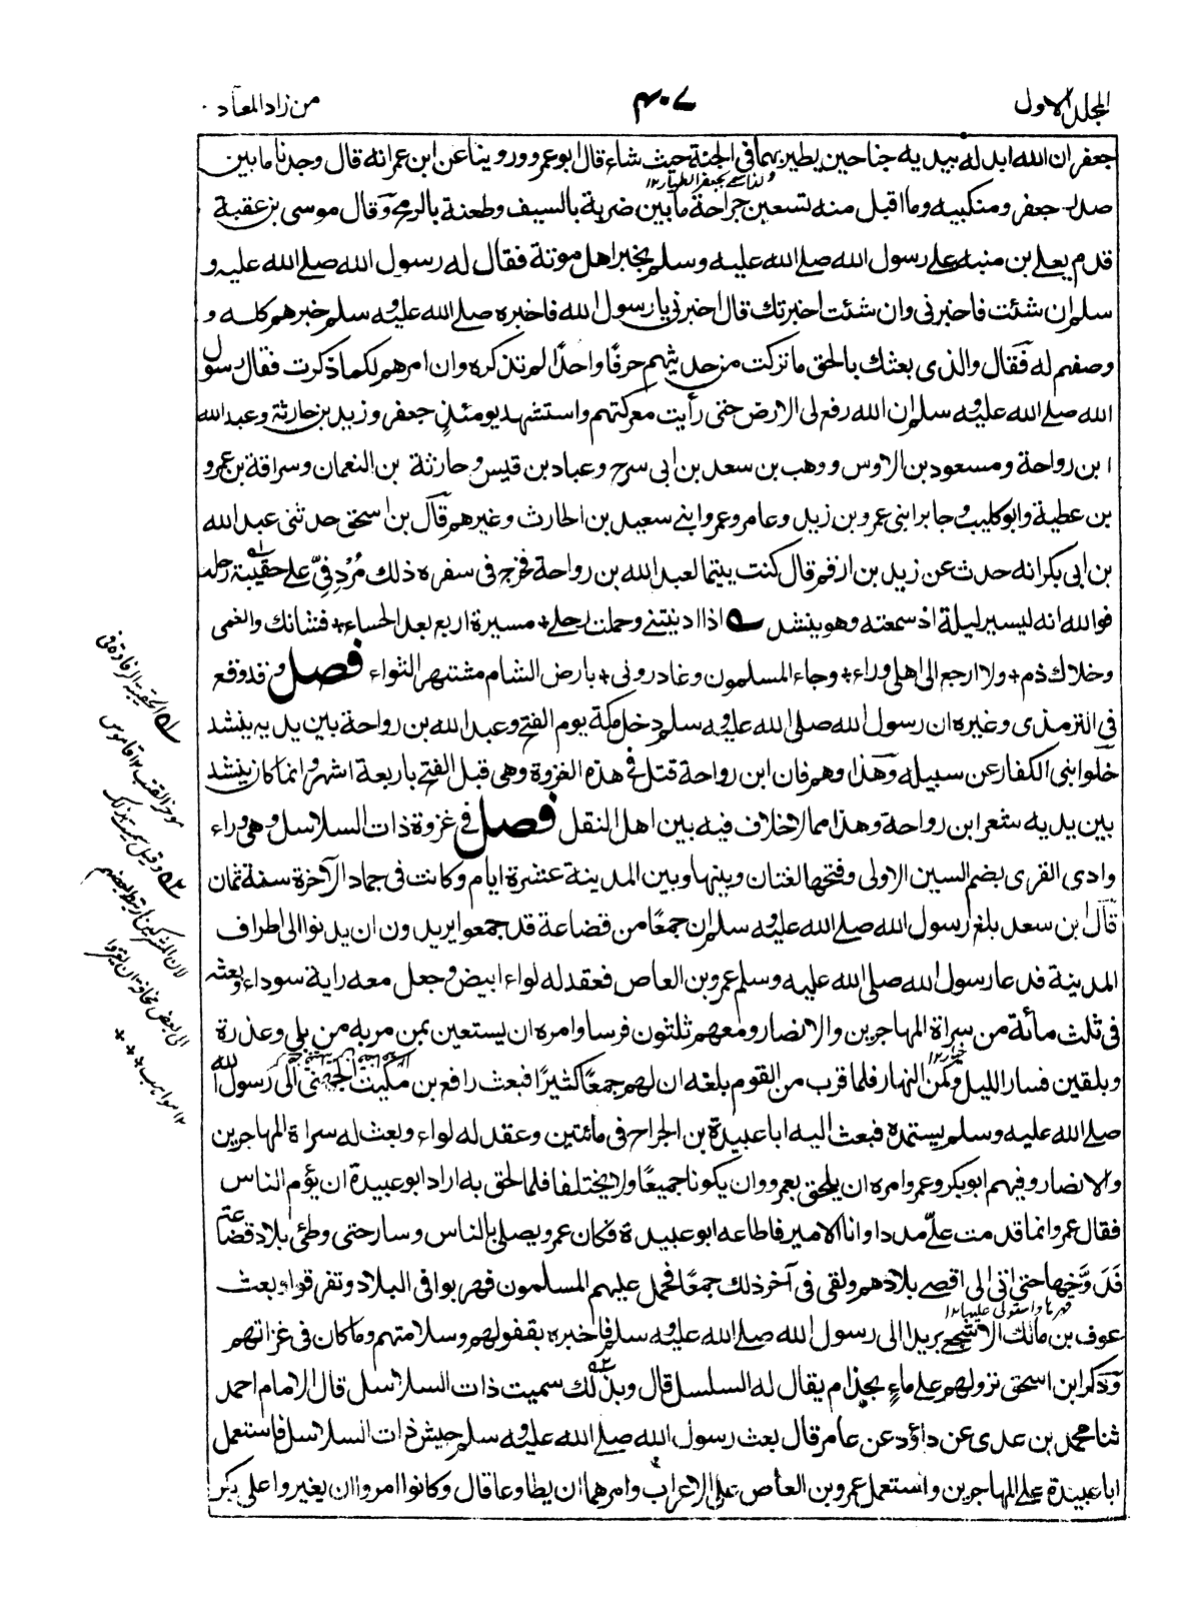 المجلد الاول
۴۰۷
من زاد المعاد
جعفر ان الله ابدله بيديه جناحين يطير بهما في الجنة حيث شاء قال ابو عمرو وروينا عن ابن عمر انه قال وجدنا ما بين
ولذا سمى بجعفر الطيار ۱۲
صدر جعفر ومنكبيه وما اقبل منه تسعين جراحة ما بين ضربة بالسيف وطعنة بالرمح وقال موسى بن عقبة
قدم يعلى بن منبه على رسول الله صلى الله عليه وسلم بخبر اهل موتة فقال له رسول الله صلى الله عليه و
سلم ان شئت فاخبرني وان شئت اخبرتك قال اخبرني يا رسول الله فاخبره صلى الله عليه وسلم خبرهم كله و
وصفهم له فقال والذي بعثك بالحق ما تركت من حديثهم حرفا واحدا لم تذكره وان امرهم لكما ذكرت فقال رسول
الله صلى الله عليه وسلم ان الله رفع لى الارض حتى رأيت معركتهم واستشهد يومئذ جعفر وزيد بن حارثة وعبد الله
ابن رواحة ومسعود بن الاوس ووهب بن سعد بن ابى سرح وعباد بن قيس وحارثة بن النعمان وسراقة بن عمرو
بن عطية وابو كليب وجابر ابنى عمرو بن زيد وعامر وعمرو ابنے سعيد بن الحارث وغيرهم قال بن اسحق حدثنى عبد الله
بن ابى بكر انه حدث عن زيد بن ارقم قال كنت يتيما لعبد الله بن رواحة فخرج فى سفره ذلك مُرْدِفِيّ على حقيبة رحله
فوالله انه ليسير ليلة اذ سمعته وهو ينشد اذا ادنيتني وحملت رحلے + مسيرة اربع بعد الحساء + فشانك والغمى
وخلاك ذم + ولا ارجع الى اهلى وراء + وجاء المسلمون وغادرونى + بارض الشام مشتهر الثواء فصل وقد وقع
فى الترمذى وغيره ان رسول الله صلى الله عليه وسلم دخل مكة يوم الفتح وعبد الله بن رواحة بين يديه ينشد
خلوا بنى الكفار عن سبيله وهذا وهم فان ابن رواحة قتل فى هذه الغزوة وهى قبل الفتح باربعة اشهر وانما كان ينشد
بين يديه شعر ابن رواحة وهذا مما لا خلاف فيه بين اهل النقل فصل فى غزوة ذات السلاسل وهى وراء
وادى القرى بضم السين الاولى وفتحها لغتان وبينها وبين المدينة عشرة ايام وكانت فى جماد الآخرة سنة ثمان
قال بن سعد بلغ رسول الله صلى الله عليه وسلم ان جمعا من قضاعة قد جمعوا يريدون ان يدنوا الى اطراف
المدينة فدعا رسول الله صلى الله عليه وسلم عمرو بن العاص فعقد له لواء ابيض وجعل معه راية سوداء وبعثه
فى ثلث مائة من سراة المهاجرين والانصار ومعهم ثلثون فرسا وامره ان يستعين بمن مر به من بلى وعذرة
خيار ۱۲
وبلقين فسار الليل وكمن النهار فلما قرب من القوم بلغه ان لهم جمعا كثيرا فبعث رافع بن مكيث الجهنى الى رسول الله
صلى الله عليه وسلم يستمده فبعث اليه ابا عبيدة بن الجراح فى مائتين وعقد له لواء وبعث له سراة المهاجرين
والانصار وفيهم ابو بكر وعمر وامره ان يلحق بعمرو وان يكونا جميعا ولا يختلفا فلما لحق به اراد ابو عبيدة ان يؤم الناس
فقال عمرو انما قدمت علىّ مددا وانا الامير فاطاعه ابو عبيدة فكان عمرو يصلى بالناس وسار حتى وطئ بلاد قضاعة
فَدَوَّخها حتى اتى الى اقصے بلادهم ولقى فى آخر ذلك جمعا فحمل عليهم المسلمون فهربوا فى البلاد وتفرقوا وبعث
قهرها واستولى عليها ۱۲
عوف بن مالك الاشجعے بريدا الى رسول الله صلى الله عليه وسلم فاخبره بقفولهم وسلامتهم وما كان فى غزاتهم
وذكر ابن اسحق نزولهم على ماء بجذام يقال له السلسل قال وبذلك سميت ذات السلاسل قال الامام احمد
ثنا محمد بن عدى عن داؤد عن عامر قال بعث رسول الله صلى الله عليه وسلم جيش ذات السلاسل فاستعمل
ابا عبيدة على المهاجرين واستعمل عمرو بن العاص على الاعراب وامرهما ان يطاوعا قال وكانوا امروا ان يغيروا على بكر
الحقيبة الرفادة فى
مؤخر القتب ۱۲ قاموس
وقيل سميت بذلك
لان المشركين ارتبط بعضهم
الى بعض مخافة ان يفروا
۱۲ مواهب